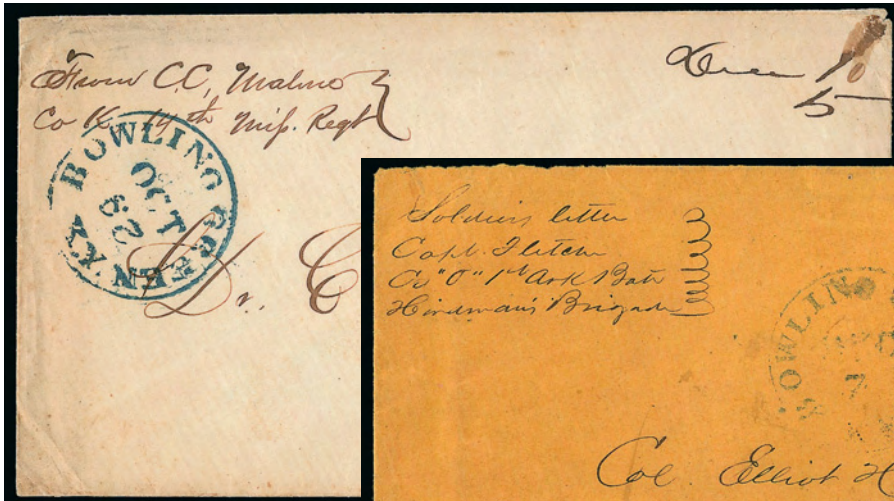 From C.C, Malone
Co K. 14th Miss. Regt
Due 10
5
BOWLING GREEN KY
OCT
29
Dr. C
Soldiers letter
Capt. Fletcher
Co "D" 1st Ark Batt
Hindman's Brigade
BOWLING
7
Col Elliot H